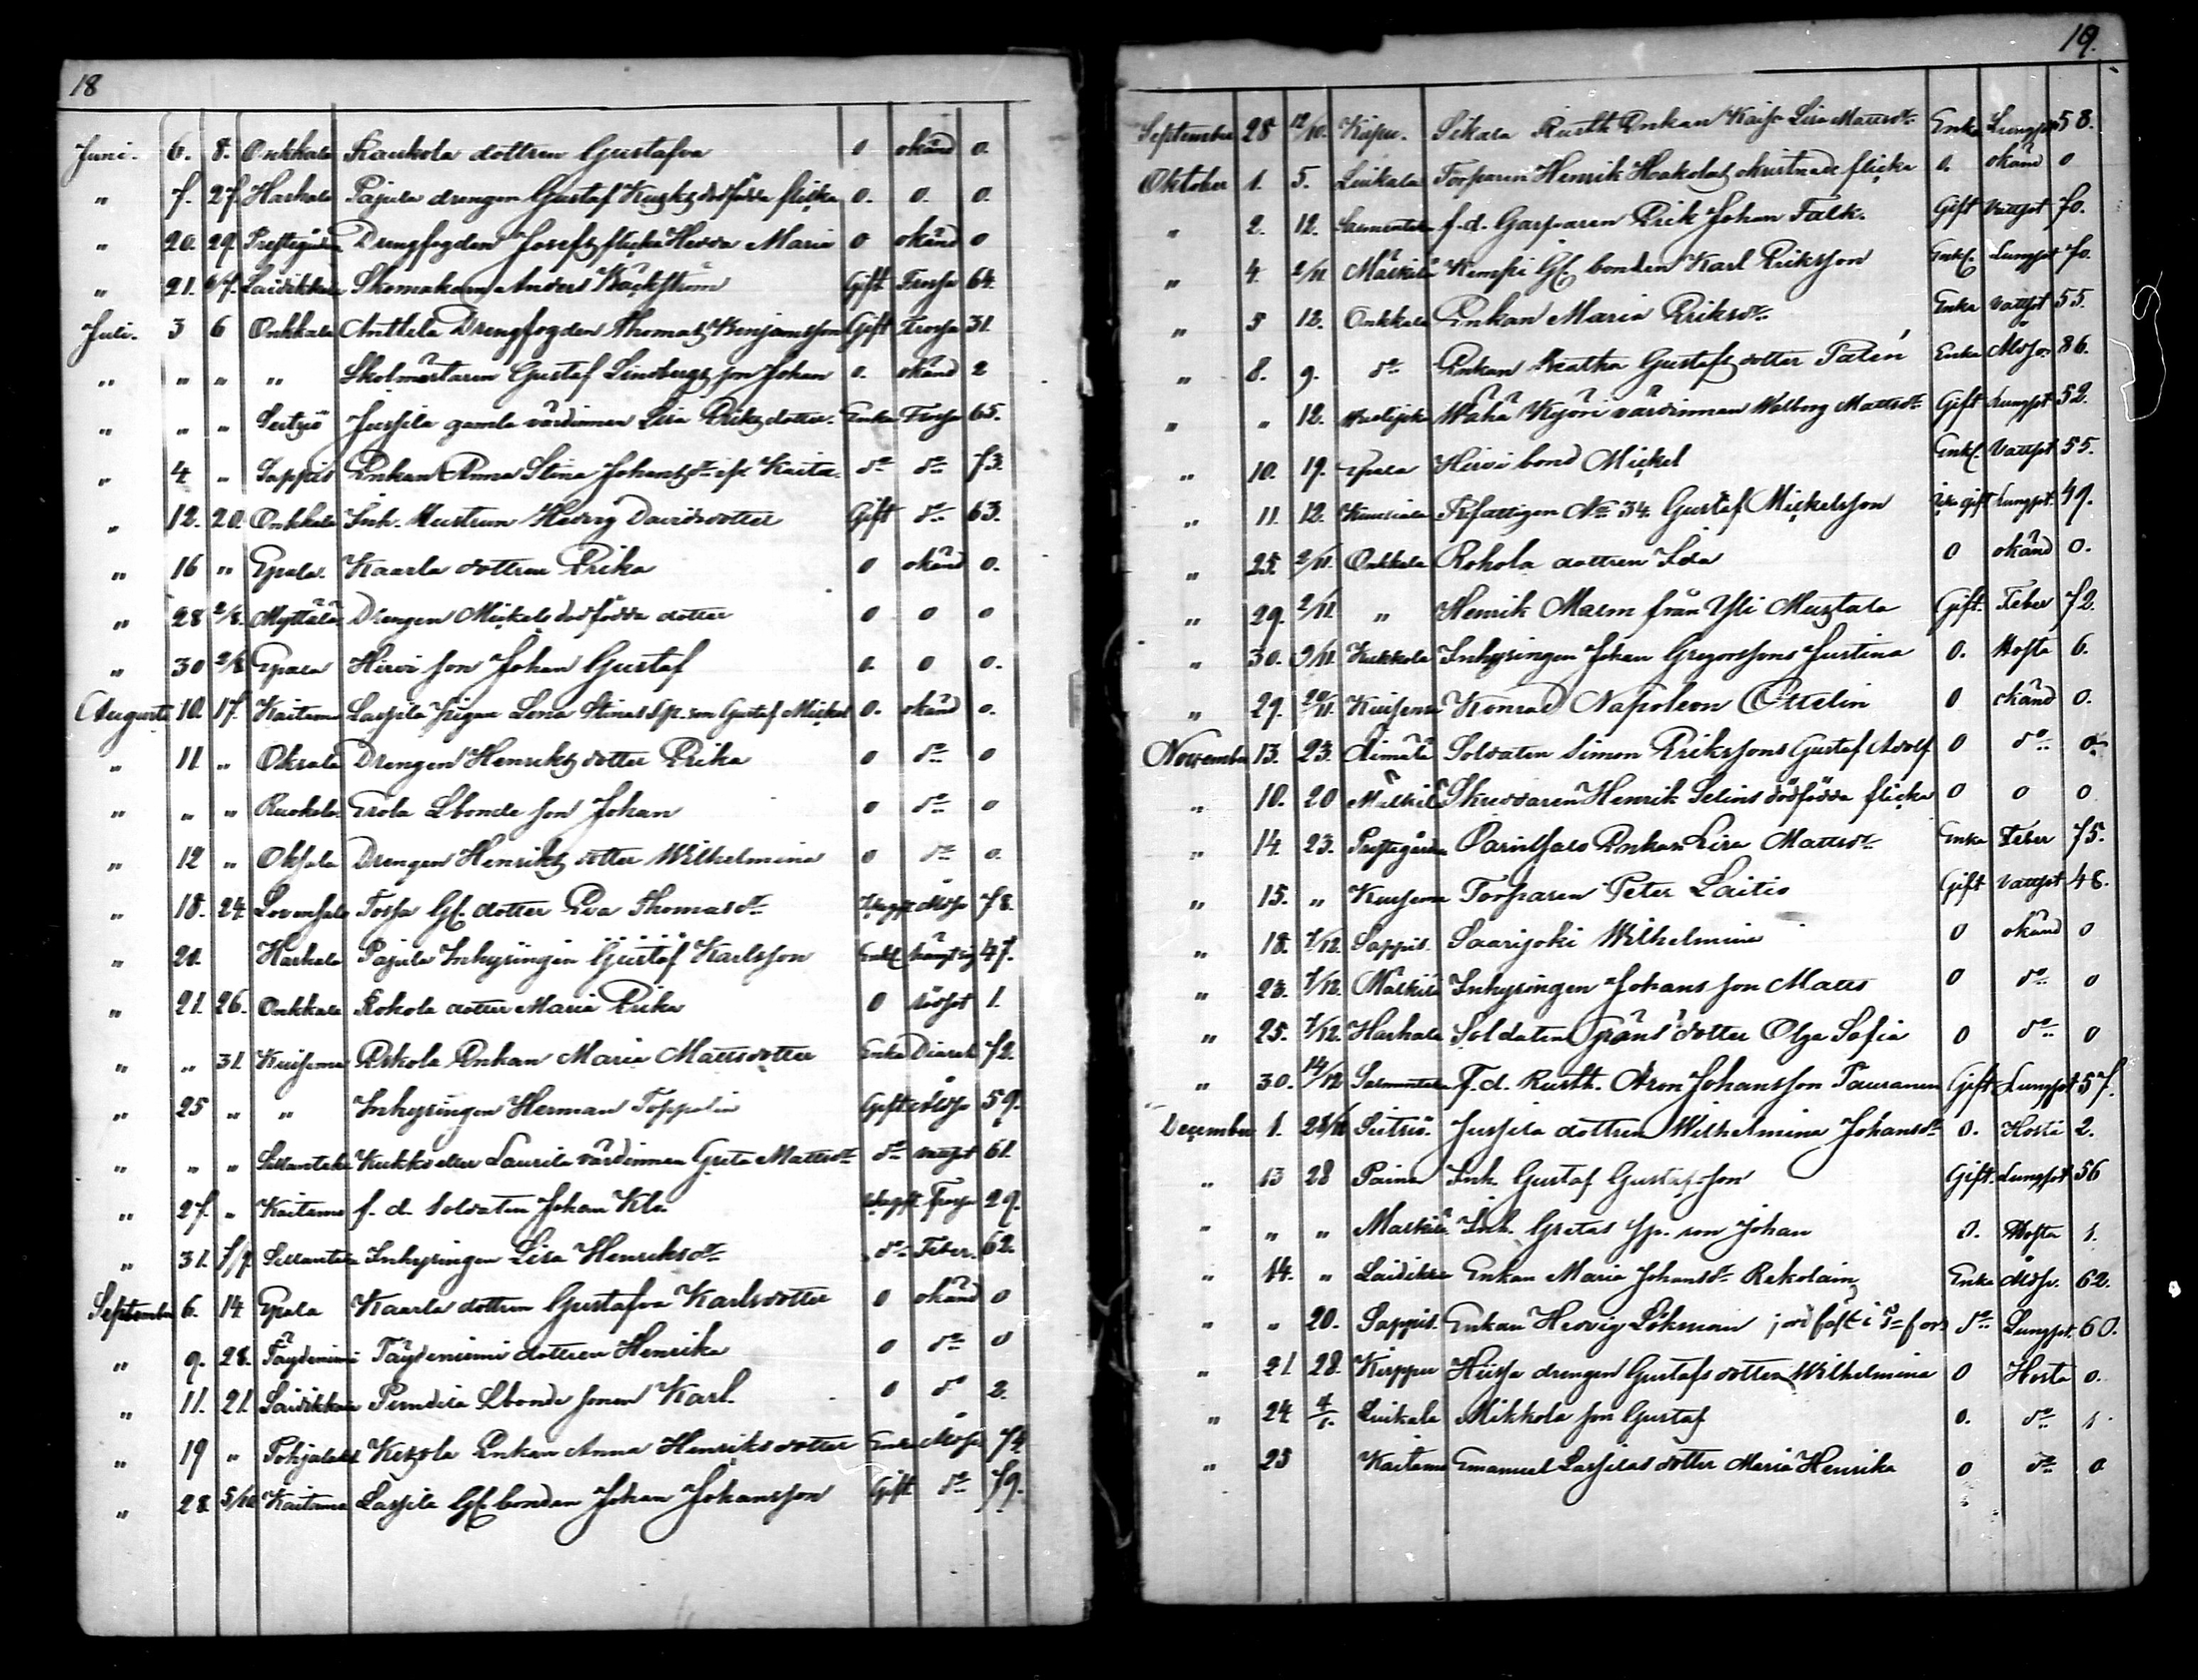 18
Juni. 6. 8. Onkkala Raukola dottren Gustafva 0 okänd 0.
" 7. 27. Harhala Pajula drengen Gustaf dödfödda flicka 0. 0. 0.
" 20. 29. Prestgården Drengfogden Josefs flicka Hedda Maria 0 okänd 0
" 21. Laidikkala Skomakaren Anders Bäckström Gift Frossa 64.
Juli. 3 6 Onkkala Anttila Drengfogden Thomas Benjamsson Gift Frossa 31.
" " " " Skolmästaren Gustaf Lindbergs son Johan 0. okänd 2
" " " Seitsiö Jussila gamla värdinnan Lisa Eriksdotter. Enka Frossa 65.
" 4 " Sappis Enkan Anna Stina Johansdr Kaita do do 73.
" 12. 20. Onkkala Inh. Hustrun Hedvig Davidsdotter Gift do 63.
" 16 " Epala. Kaarla dottren Erika 0 okänd 0.
" 28 2/8. Myttälä Drengen Mickels dödfödda dotter 0 0 0
" 30 2/8 Epala Hirvi son Johan Gustaf 0. 0 0.
Augusti 10. 17. Kaitamo Lassila pigan Lena Stinas Sp. son Gustaf Mickel 0. okänd 0.
" 11 " Oksala Drengen Henriks dotter Erika 0 do 0
" " " Ruokola Erola Lbonde son Johan 0 do 0
" 12 " Oksala Drengen Henriks dotter Wilhelmina 0 do 0.
" 18. 24. Tossa Gf. dotter Eva Thomasdr 78.
" 20. Harhala Pajula Inhysingen Gustaf Karlsson Enkl. hängt sig 47.
" 21. 26. Onkkala Rokola dotter Maria Erika 0 rödsot 1.
" " 31. Kuisema Eskola Enkan Maria Mattsdotter Enka Diareh 72.
" 25 " " Inhysingen Herman Toppelin Gift 59.
" " " Kukko eller Laurila värdinnan Greta Mattsdr do vattsot 61.
" 27. " Kaitamo f. d. Soldaten Johan Klo. Frossa 29.
" 31. 7/9. Inhysingen Lisa Henriksdr do Feber. 62.
September 6. 14 Epala Kaarla dottren Gustafva Karlsdotter 0 okänd 0
" 9. 28. Täydenimi Täydenimi dottren Henrika 0 do 0
" 11. 21. Laidikkala Pendilä Lbonde sonen Karl. 0 do 2.
" 19 " Enkan Anna Henriksdotter Enka 74
" 28 5/10 Kaitamo Lassila Gf. bonden Johan Johansson Gift do 79.
19.
September 28 12/10. Sikala Rusth Enkan Kaisa Lisa Mattsdr Enka Lungsot 58.
Oktober 1. 5. Luikala Torparen Henrik Hakolas okristnade flicka 0. okänd 0
" 2. 12. f. d. Garfvaren Erik Johan Falk. Gift Vattsot 70.
" 4. 2/11. Mäskälä Kemppi Gf. bonden Karl Eriksson Enkl. Lungsot 70.
" 5 12. Onkkala Enkan Maria Eriksdr Enka Vattsot 55.
" 8. 9. do Enkan Beatha Gustafsdotter Palén Enka 86.
" " 12. Wähä Kyöri värdinnan Walborg Mattsdr Gift Lungsot 52.
" 10. 19. Epala Hirvi bond Mickel Enkl. Vattsot 55.
" 11. 12. No 34. Gustaf Mickelsson Icke gift Lungsot. 49.
" 25. 2/11. Onkkala Rohola dottren Ida 0 okänd 0.
" 29. 2/11. " Henrik Malm från Yli Mustala Gift. Feber 72.
" 30. 9/11. Kukkola Inhysingen Johan Gregorssons Justina 0. Hosta 6.
" 29. 20/11. Kuisema Konrad Napoleon Ottelin 0 okänd 0.
November 13. 23. Aimälä Soldaten Simon Erikssons Gustaf Adolf 0 do 0.
" 10. 20 Skreddaren Henrik Selins dödfödda flicka 0 0 0
" 14. 23. Prestgården Enkan Lisa Mattsdr Enka Feber 75.
" 15. " Kuisema Torparen Peter Laitio Gift Vattsot 48.
" 18. 7/12. Sappis. Saarijoki Wilhelmina 0 okänd 0
" 23. 7/12. Mäskälä Inhysingen Johans son Matts 0 do 0
" 25. 7/12. Harhala Soldaten Gräns dotter Olga Sofia 0 do 0
" 30. 14/12 f. d. Rusth. Aron Johansson Tauranen Gift Lungsot 57.
December 1. Seitsiö. Jussila dottren Wilhelmina Johansdr 0. Hosta 2.
" 13 28 Paina Inh. Gustaf Gustafsson Gift. Lungsot 56
" " " Mäskälä Inh. Gretas Sp. son Johan 0. Hosta 1.
" 14. " Laidikkala Enkan Maria Johansdr Rekolain Enka 62.
" " 20. Sappis. Enkan Hedvig Lökman do Lungsot. 60.
" 21. 28. Kirppu Hiissa drengen Gustafs dotter Wilhelmina 0 Hosta 0.
" 24. 4/1. Luikala Mikkola son Gustaf 0. do 1.
" 25 Kaitamo Emanuel Lassilas dotter Maria Henrika 0 do 0